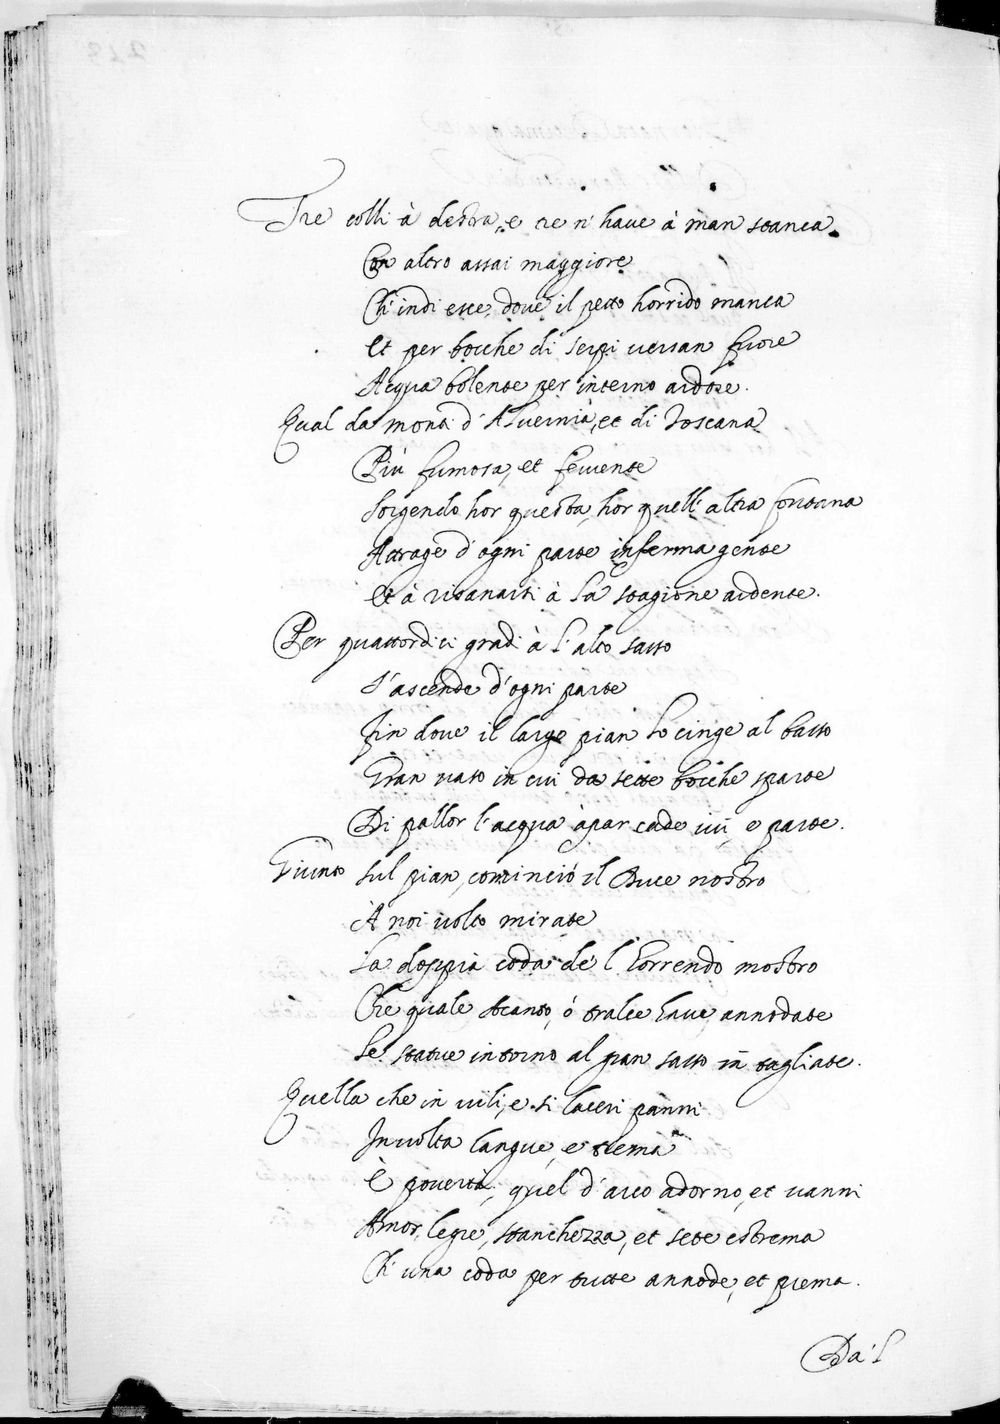 Tre colli à destra, e tre n' haue à man stanca
Con altro assai maggiore
Ch' indi esce, doue il petto horrido manca
Et per bocche di serpi uersan fuore
Acqua bolente per interno ardore.
Qual da monti d' Aluernia, et di Toscana
Più fumosa, et feruente
Sorgendo hor questa, hor quell' altra fontana
Attrage d' ogni parte inferma gente
Et à risanarsi à la stagione ardente.
Per quattordici gradi à l' alto sasso
S' ascende d' ogni parte
Fin doue il largo pian lo cinge al basso
Gran uaso in cui da sette bocche sparte
Di pallor l' acqua à par cade iui, e parte.
Giunto sul pian, cominciò il Duce nostro
A noi uolto mirate
La doppia coda de l' horrendo mostro
Che quale acanto, ó tralce haue annodate
Se statue intorno al pian sasso in tagliate.
Quella che in uili, e si laceri panni
Inuolta langue, e trema
È pouertà, quel d' arco adorno, et uanni
Amor, legre, stanchezza, et sete estrema
Ch' una coda per tutte annode, et prema.
Da' l